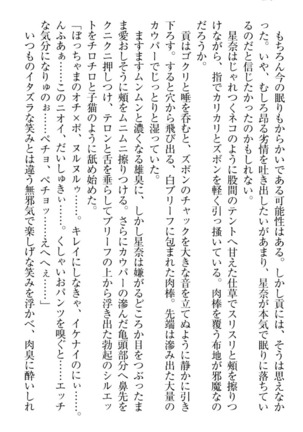 もちろん今の眠りもからかいである可能性はある。しかし貢には、そうは思えなか
った。いや、むしろ昂る劣情を吐き出したいがために、星奈が本気で眠りに落ちてい
るのだと信じたかったのかもしれない。
星奈はじゃれつくネコのように股間のテントへ甘えた仕草でスリスリと頬を擦りつ
けながら、指でカリカリとズボンを軽く引っ掻いている。肉棒を覆う布地が邪魔なの
だろうか。
貢はゴクリと唾を呑むと、ズボンのチャックを大きな音を立てぬように静かに引き
下ろす。すると穴から飛び出る、白ブリーフに包まれた肉棒。先端は滲み出た大量の
カウパーでじっとりと湿っていた。
ますますムンムンと濃くなる雄臭に、しかし星奈は嫌がるどころか目をつぶったま
ま愛おしそうに頬をムニムニ擦りつける。さらにカウパーの滲んだ亀頭部分へ鼻先を
クニクニ押しつけ、テロンと舌を垂らしてブリーフの上から浮き出た勃起のシルエッ
トをチロチロと子猫のように舐め始めた。
「ぼっちゃまのオチ×ポ、ヌルヌルゥ……。キレイにしなきゃ、イケナイのにぃ……
んふぁぁ……このニオイ、だいしゅきぃ……くしゃいおパンツを嗅ぐと……エッチ
な気分になりゅのぉ……ペチョ、ペチョッ……えへへぇ……」
いつものイタズラな笑みとは違う無邪気で楽しげな笑みを浮かべ、肉臭に酔いしれ